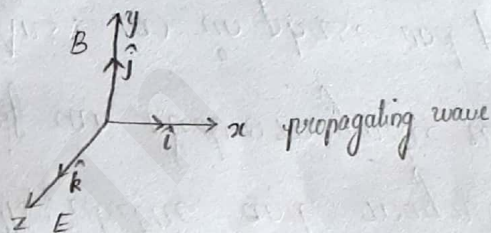 y
B
ĵ
î x propagating wave
k̂
z E